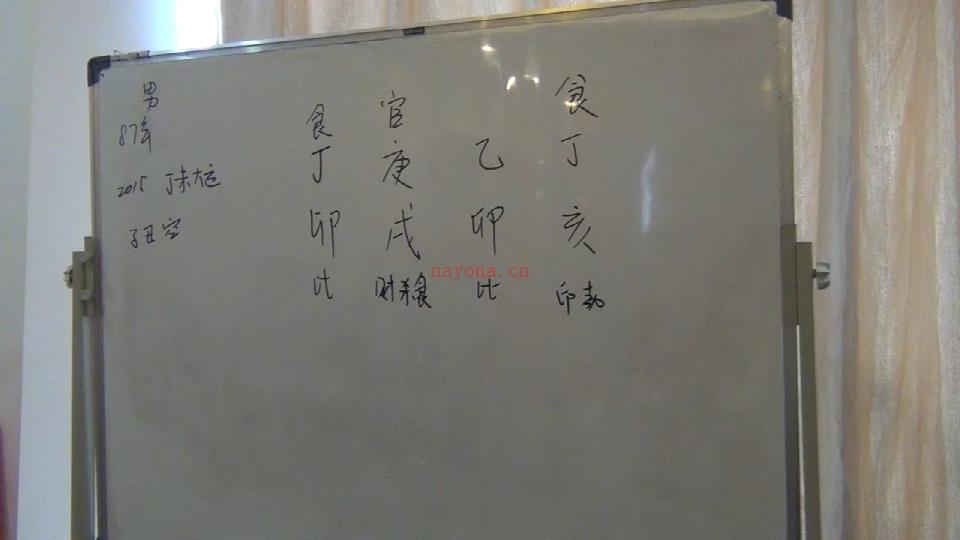 男
87年
2015 丁未大运
子丑空
食 官 食
丁 庚 乙 丁
卯 戌 卯 亥
比 财杀食 比 印劫
nayona.cn